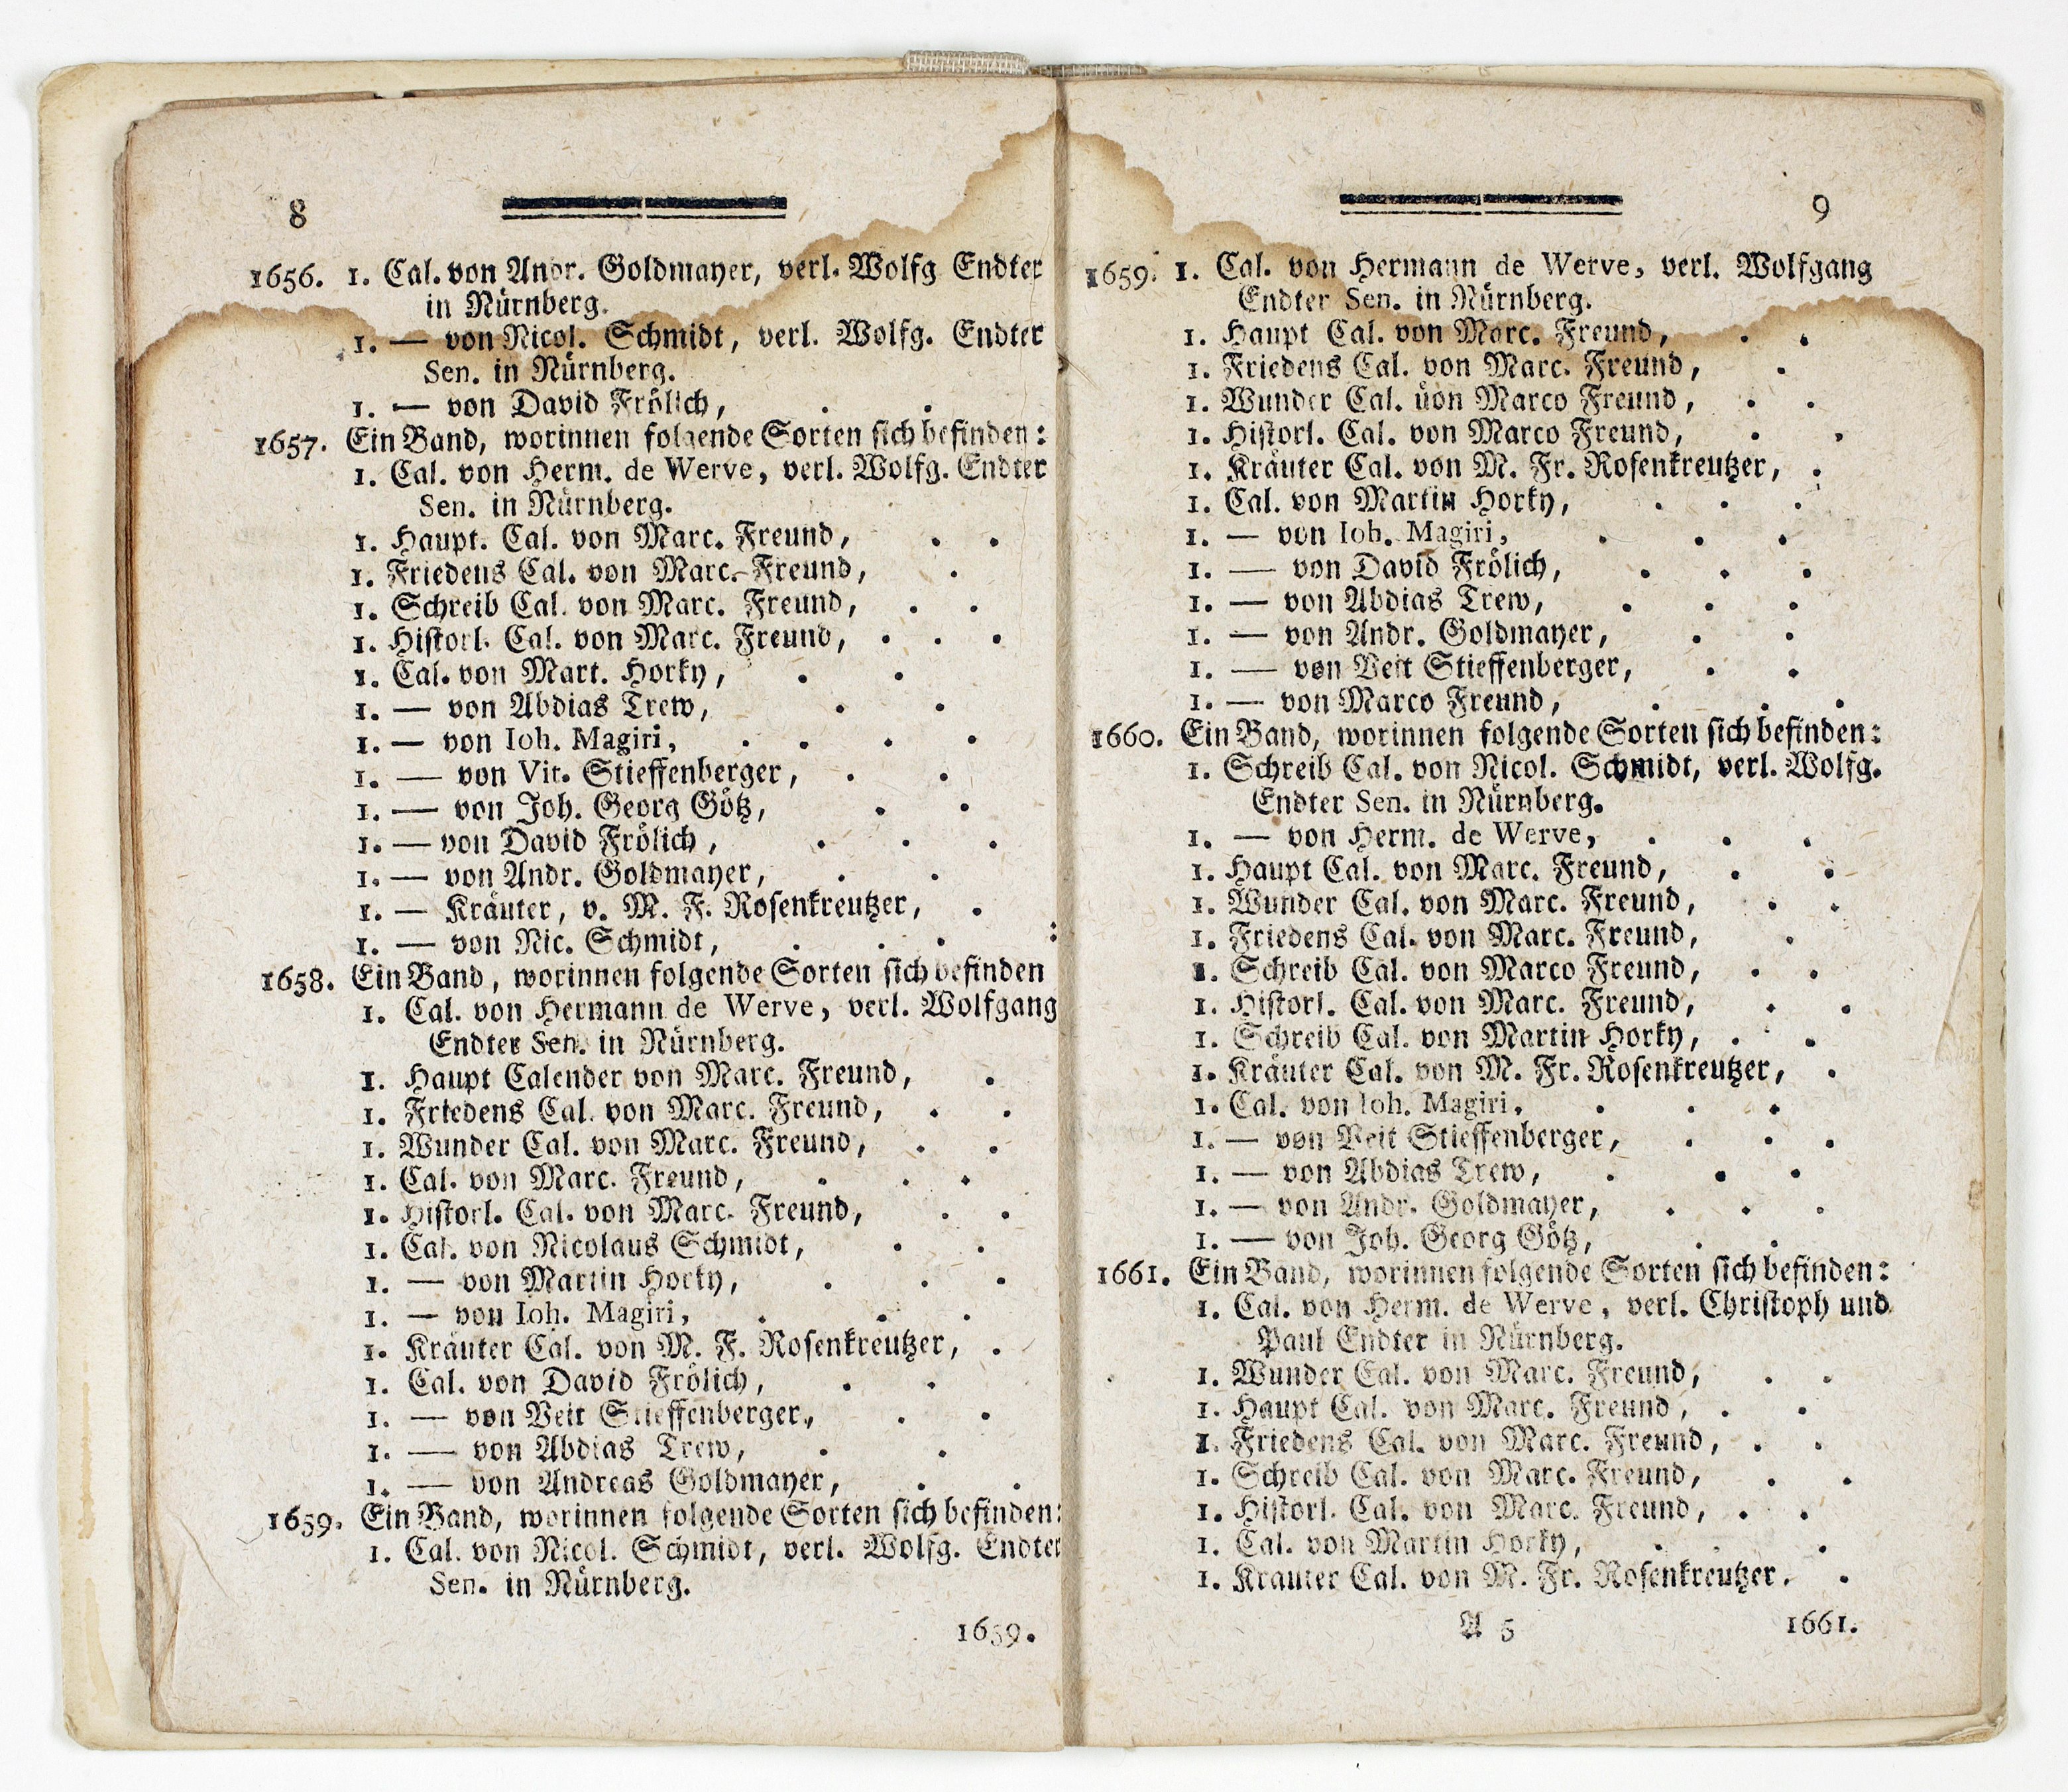 8
1656. 1. Cal. von Andr. Goldmayer, verl. Wolfg Endter
in Nürnberg.
1. — von Nicol. Schmidt, verl. Wolfg. Endter
Sen. in Nürnberg.
1. — von David Frölich, . .
1657. Ein Band, worinnen folgende Sorten sich befinden:
1. Cal. von Herm. de Werve, verl. Wolfg. Endter
Sen. in Nürnberg.
1. Haupt. Cal. von Marc. Freund, . .
1. Friedens Cal. von Marc. Freund, .
1. Schreib Cal. von Marc. Freund, . .
1. Historl. Cal. von Marc. Freund, . . .
1. Cal. von Mart. Horky, . .
1. — von Abdias Trew, . .
1. — von Ioh. Magiri, . . . .
1. — von Vit. Stieffenberger, . .
1. — von Joh. Georg Götz, . .
1. — von David Frölich, . . .
1. — von Andr. Goldmayer, . .
1. — Kräuter, v. M. F. Rosenkreutzer, .
1. — von Nic. Schmidt, . . . :
1658. Ein Band, worinnen folgende Sorten sich befinden
1. Cal. von Hermann de Werve, verl. Wolfgang
Endter Sen. in Nürnberg.
1. Haupt Calender von Marc. Freund, .
1. Friedens Cal. von Marc. Freund, . .
1. Wunder Cal. von Marc. Freund, . .
1. Cal. von Marc. Freund, . . .
1. Historl. Cal. von Marc. Freund, . .
1. Cal. von Nicolaus Schmidt, . .
1. — von Martin Horky, . . .
1. — von Ioh. Magiri, . . .
1. Kräuter Cal. von M. F. Rosenkreutzer, .
1. Cal. von David Frölich, . .
1. — von Veit Stieffenberger, . .
1. — von Abdias Trew, . .
1. — von Andreas Goldmayer, . .
1659. Ein Band, worinnen folgende Sorten sich befinden:
1. Cal. von Nicol. Schmidt, verl. Wolfg. Endter
Sen. in Nürnberg.
1659.
9
1659. 1. Cal. von Hermann de Werve, verl. Wolfgang
Endter Sen. in Nürnberg.
1. Haupt Cal. von Marc. Freund, . .
1. Friedens Cal. von Marc. Freund, .
1. Wunder Cal. von Marco Freund, . .
1. Historl. Cal. von Marco Freund, . .
1. Kräuter Cal. von M. Fr. Rosenkreutzer, .
1. Cal. von Martin Horky, . . .
1. — von Ioh. Magiri, . . .
1. — von David Frölich, . . .
1. — von Abdias Trew, . . .
1. — von Andr. Goldmayer, . .
1. — von Veit Stieffenberger, . .
1. — von Marco Freund, . . .
1660. Ein Band, worinnen folgende Sorten sich befinden:
1. Schreib Cal. von Nicol. Schmidt, verl. Wolfg.
Endter Sen. in Nürnberg.
1. — von Herm. de Werve, . . .
1. Haupt Cal. von Marc. Freund, . .
1. Wunder Cal. von Marc. Freund, . .
1. Friedens Cal. von Marc. Freund, .
1. Schreib Cal. von Marco Freund, . .
1. Historl. Cal. von Marc. Freund, . .
1. Schreib Cal. von Martin Horky, . .
1. Kräuter Cal. von M. Fr. Rosenkreutzer, .
1. Cal. von Ioh. Magiri, . . .
1. — von Veit Stieffenberger, . . .
1. — von Abdias Trew, . . .
1. — von Andr. Goldmayer, . . .
1. — von Joh. Georg Götz, . .
1661. Ein Band, worinnen folgende Sorten sich befinden:
1. Cal. von Herm. de Werve, verl. Christoph und
Paul Endter in Nürnberg.
1. Wunder Cal. von Marc. Freund, . .
1. Haupt Cal. von Marc. Freund, . .
1. Friedens Cal. von Marc. Freund, . .
1. Schreib Cal. von Marc. Freund, . .
1. Historl. Cal. von Marc. Freund, . .
1. Cal. von Martin Horky, . . .
1. Kräuter Cal. von M. Fr. Rosenkreutzer. .
A 5 1661.